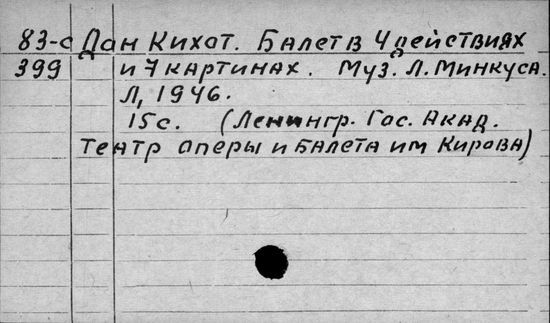 83-с Дон Кихот. Балет в 4 действиях
399 и 7 картинах. Муз. Л. Минкуса.
Л, 1946.
15 с. (Ленингр. Гос. Акад.
Театр оперы и балета им Кирова)